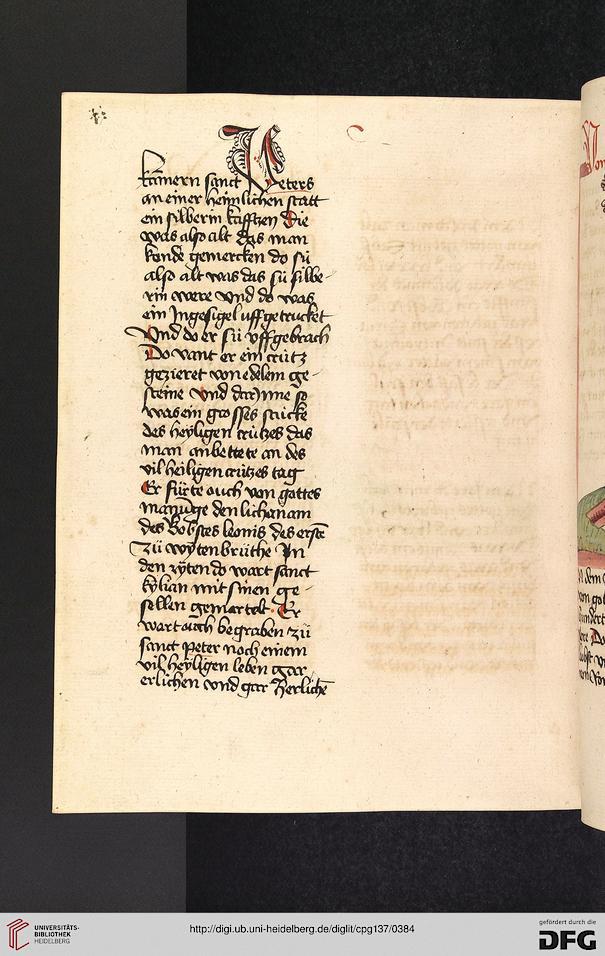 kam̄ern sanct Peters
an einer heimlichen statt
ein silberin kafftzen Die
was also alt das man
konde gemercken do sü
also alt was das sü silbe-
rin were vnd do was
ein Ingesigel uff getrucket
Vnd do er sü vff gebrach
Do vant er ein crütz
gezieret von edelem ge-
steine Vnd dar Inne so
was ein grosses stücke
des heyligen crützes das
man anbettete an des
vil heiligen crützes tag
Er fürte ouch von gottes
manūge den lichanam
des Bobstes leonis des erstē
zü wytenbrüthe In
den zyten do wart sanct
kylian mit sinen ge-
sellen gemartelt Er
wart ouch begraben zü
sanct Peter noch einem
vil heyligen leben gar
erlichen vnd gar herlichē
UNIVERSITÄTS-
BIBLIOTHEK
HEIDELBERG
http://digi.ub.uni-heidelberg.de/diglit/cpg137/0384
gefördert durch die
DFG